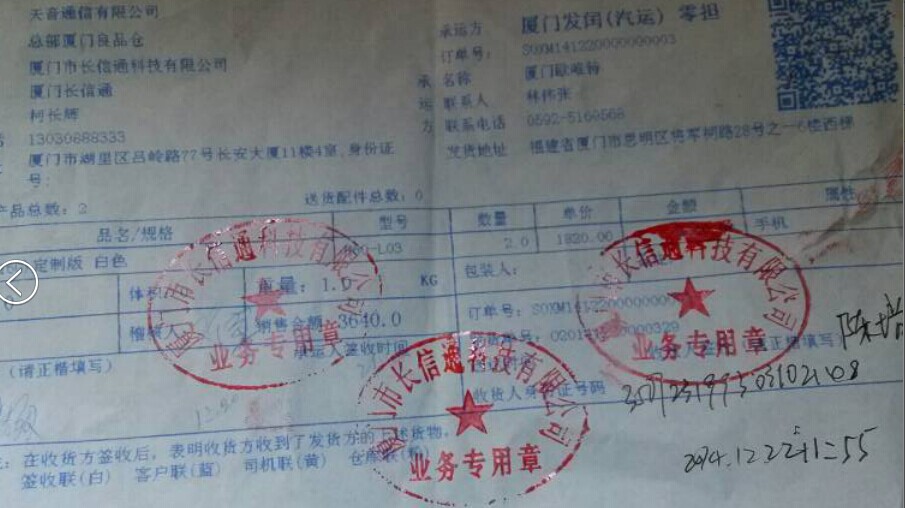 天音通信有限公司
总部厦门良品仓
厦门市长信通科技有限公司
厦门长信通
柯长辉
13030888333
厦门市湖里区吕岭路77号长安大厦11楼4室,身份证
号:
承运方
承运方 厦门发闰(汽运) 零担
订单号: SOXM141220000000003
名称
联系人 林伟张
联系电话 0592-5169568
发货地址 福建省厦门市思明区将军祠路28号之一6楼西梯
产品总数: 2 送货配件总数: 0
品名/规格 型号 数量 单价 金额 属性
定制版 白色 -L03 2.0 1820.00 手机
体积: 重量: 1.0 KG 包装人:
稽核人 销售金额: 3640.0 订单号: SOXM1412200000000
0329
(请正楷填写) 承运人签收时间 正楷填写)
收货人身份证号码
2014.12.22 11:55
注: 在收货方签收后, 表明收货方收到了发货方的上述货物。
签收联(白) 客户联(蓝) 司机联(黄) 仓库联(粉)
厦门市长信通科技有限公司
业务专用章
厦门市长信通科技有限公司
业务专用章
厦门市长信通科技有限公司
业务专用章